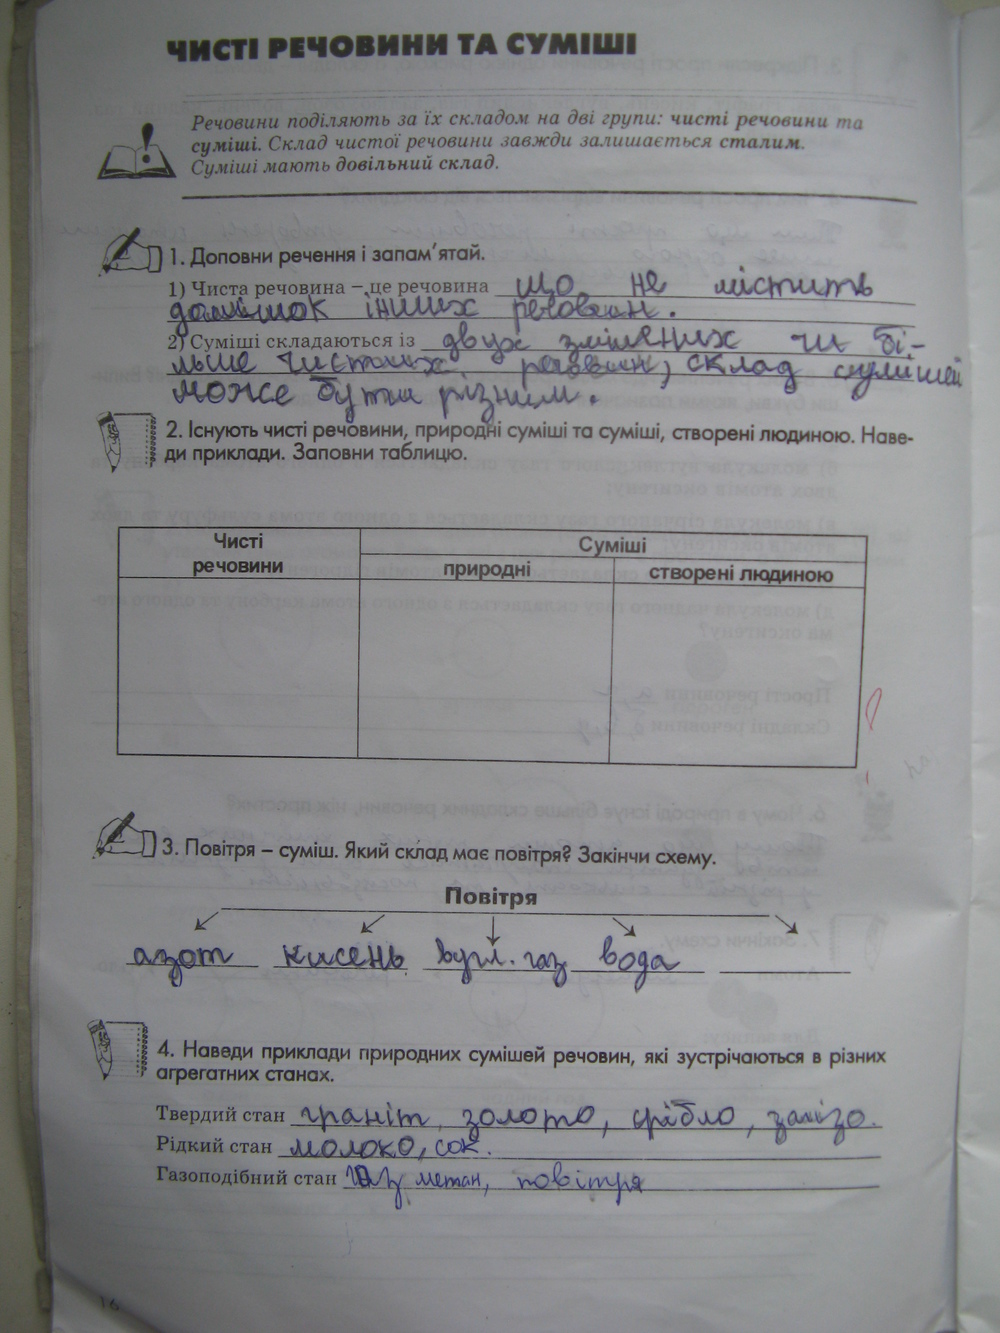 ЧИСТІ РЕЧОВИНИ ТА СУМІШІ
Речовини поділяють за їх складом на дві групи: чисті речовини та
суміші. Склад чистої речовини завжди залишається сталим.
Суміші мають довільний склад.
1. Доповни речення і запам'ятай.
1) Чиста речовина – це речовина що не містить
домішок інших речовин.
2) Суміші складаються із двух змішених чи бі-
льше чистих речовин, склад сумішей
може бути різним.
2. Існують чисті речовини, природні суміші та суміші, створені людиною. Наве-
ди приклади. Заповни таблицю.
Чисті речовини
Суміші
природні
створені людиною
3. Повітря – суміш. Який склад має повітря? Закінчи схему.
Повітря
азот кисень вугл. газ вода
4. Наведи приклади природних сумішей речовин, які зустрічаються в різних
агрегатних станах.
Твердий стан граніт, золото, срібло, залізо.
Рідкий стан молоко, сок.
Газоподібний стан газ метан, повітря
16